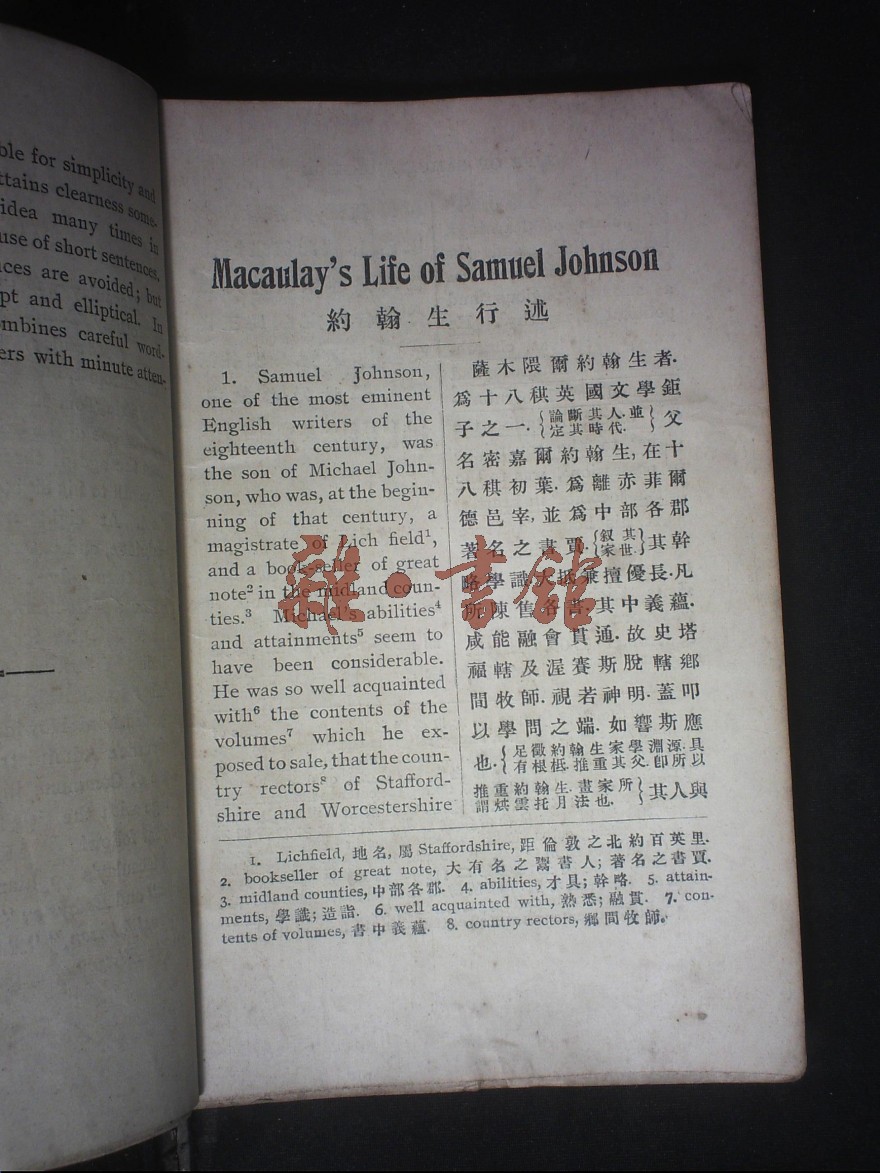 ble for simplicity and
ttains clearness some-
idea many times in
use of short sentences.
ces are avoided; but
pt and elliptical. In
mbines careful word-
ers with minute atten-
Macaulay's Life of Samuel Johnson
約翰生行述
1. Samuel Johnson,
one of the most eminent
English writers of the
eighteenth century, was
the son of Michael John-
son, who was, at the begin-
ning of that century, a
magistrate of Lich field¹,
and a book-seller of great
note² in the midland coun-
ties.³ Michael's abilities⁴
and attainments⁵ seem to
have been considerable.
He was so well acquainted
with⁶ the contents of the
volumes⁷ which he ex-
posed to sale, that the coun-
try rectors⁸ of Stafford-
shire and Worcestershire
薩木隈爾約翰生者.
爲十八稘英國文學鉅
子之一.{論斷其人.並定其時代.}父
名密嘉爾約翰生,在十
八稘初葉.爲離赤菲爾
德邑宰,並爲中部各郡
著名之書賈.{叙其家世.}其幹
略學識大抵兼擅優長.凡
所陳舊各書,其中義蘊.
咸能融會貫通.故史塔
福轄及渥賽斯脫轄鄉
間牧師.視若神明.蓋叩
以學問之端.如響斯應
也.{足徵約翰生家學淵源.具有根柢.推重其父.卽所以
推重約翰生.畫家所謂烘雲托月法也.}其人與
1. Lichfield, 地名,屬 Staffordshire, 距倫敦之北約百英里.
2. bookseller of great note, 大有名之鬻書人;著名之書賈.
3. midland counties, 中部各郡. 4. abilities, 才具;幹略. 5. attain-
ments, 學識;造詣. 6. well acquainted with, 熟悉;融貫. 7. con-
tents of volumes, 書中義蘊. 8. country rectors, 鄉間牧師.
雜·書館